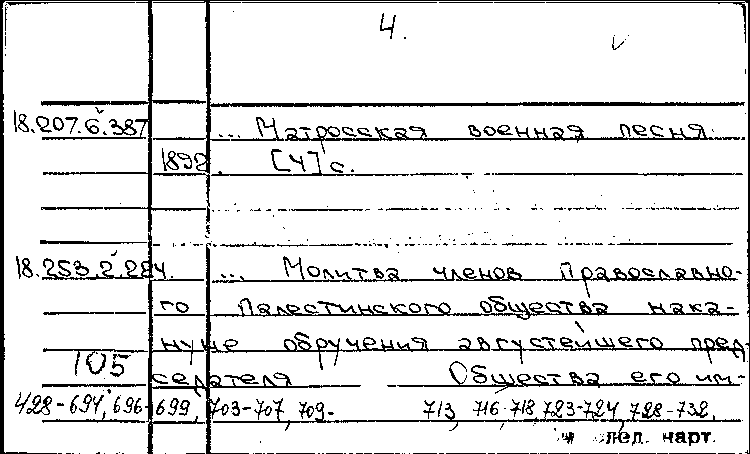 4.
18.207.6.387 ... Матросская военная песня.
1892. [4] с.
18.253.2.224. ... Молитва членов Православно-
го Палестинского общества нака-
нуне обручения августейшего пред-
105
седателя Общества его им-
428-694, 696-699, 703-707, 709- 713, 716-718, 723-724, 728-732.
след. карт.